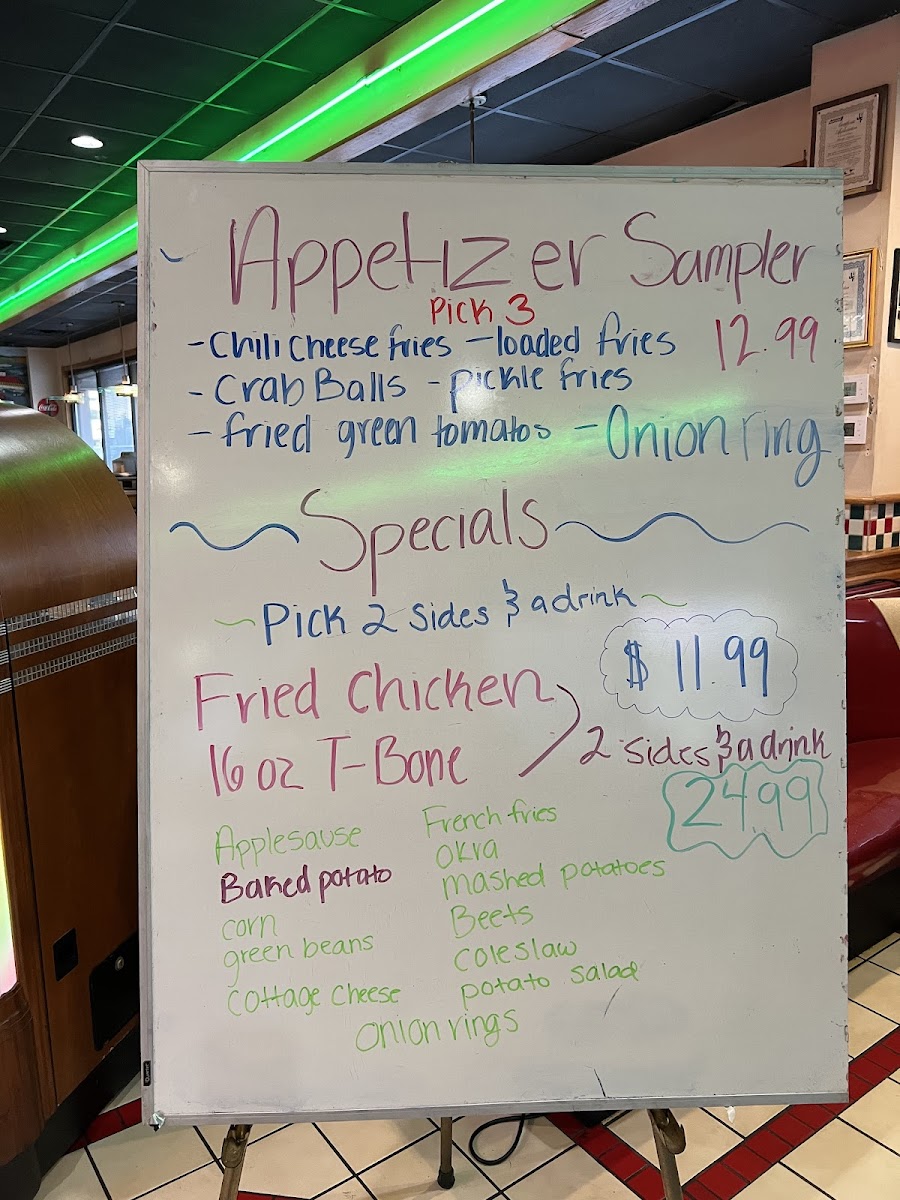 Appetizer Sampler
Pick 3
- Chili Cheese fries - loaded fries 12.99
- Crab Balls - pickle fries
- fried green tomatos - Onion ring
Specials
~ Pick 2 sides & a drink ~
$ 11.99
Fried Chicken
16 oz T-Bone
2 sides & a drink
24.99
Applesause
French fries
Baked potato
okra
corn
mashed potatoes
green beans
Beets
cottage cheese
coleslaw
potato salad
onion rings